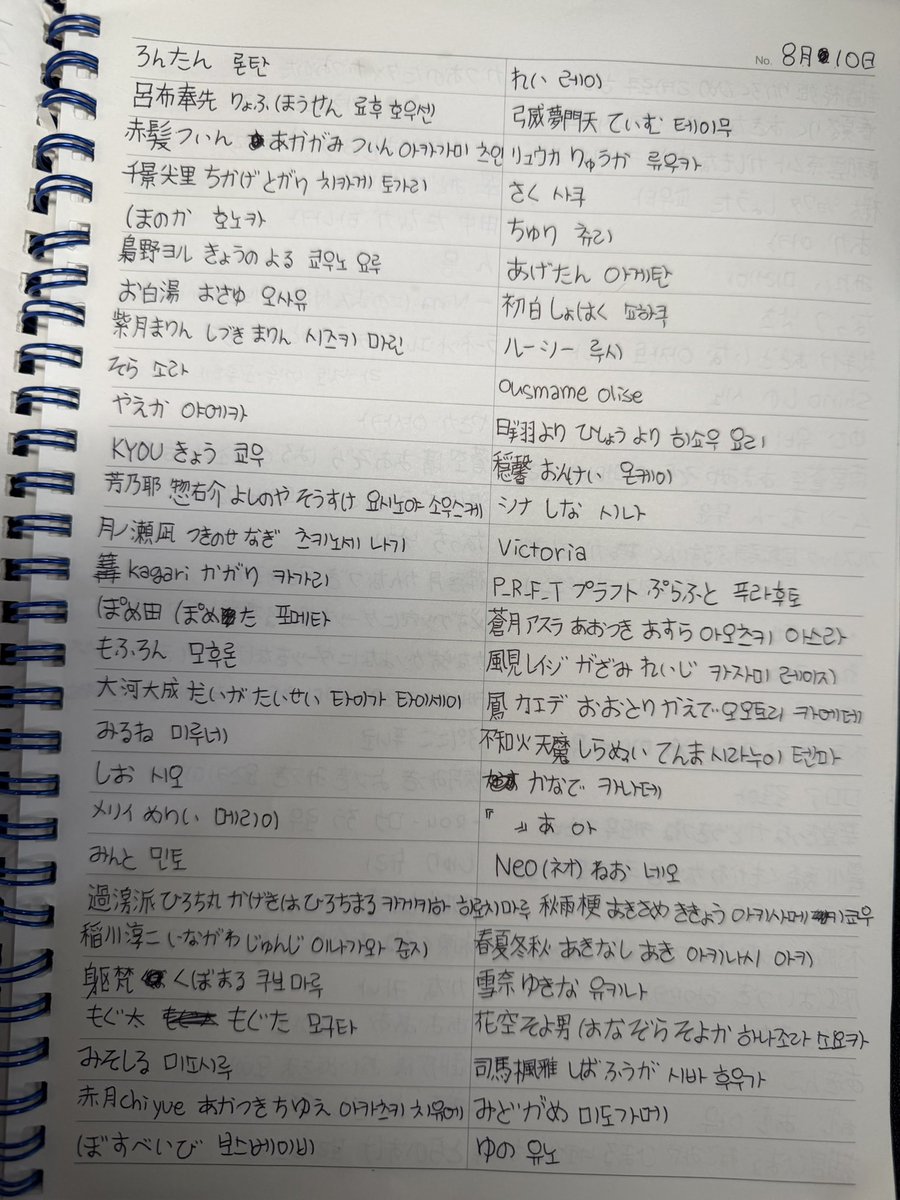 No. 8月10日
ろんたん 론탄
呂布奉先 りょふ ほうせん 료후 호우센
赤髪ついん あかがみ ついん 아카가미 츠인
千景尖里 ちかげ とがり 치카게 토가리
ほのか 호노카
梟野ヨル きょうの よる 쿄우노 요루
お白湯 おさゆ 오사유
紫月まりん しづき まりん 시즈키 마린
そら 소라
やえか 야에카
KYOU きょう 쿄우
芳乃耶 惣右介 よしのや そうすけ 요시노야 소우스케
月ノ瀬凪 つきのせ なぎ 츠키노세 나기
篝 kagari かがり 카가리
ぽめ田 ぽめた 포메타
もふろん 모후론
大河大成 たいが たいせい 타이가 타이세이
みるね 미루네
しお 시오
メリイ めりい 메리이
みんと 민토
過激派ひろち丸 かげきは ひろちまる 카게키하 히로치마루
稲川淳二 いながわ じゅんじ 이나가와 쥰지
躯梵 くぼまる 쿠보마루
もぐ太 もぐた 모구타
みそしる 미소시루
赤月chiyue あかつき ちゆえ 아카츠키 치유에
ぼすべいび 보스베이비
れい 레이
弓威夢門天 ていむ 테이무
リュウカ りゅうか 류우카
さく 사쿠
ちゅり 츄리
あげたん 아게탄
初白 しょはく 쇼하쿠
ルーシー 루시
ousmame olise
羽より ひしょう より 히쇼우 요리
穏馨 おんけい 온케이
シナ しな 시나
Victoria
P_R_F_T プラフト ぷらふと 푸라후토
蒼月アスラ あおつき あすら 아오츠키 아스라
風見レイジ かざみ れいじ 카자미 레이지
鳳 カエデ おおとり かえで 오오토리 카에데
不知火天魔 しらぬい てんま 시라누이 텐마
かなで 카나데
『 』 あ 아
Neo(ネオ) ねお 네오
秋雨梗 あきさめ ききょう 아키사메 키쿄우
春夏冬秋 あきなし あき 아키나시 아키
雪奈 ゆきな 유키나
花空そよ男 はなぞら そよか 하나조라 소요카
司馬楓雅 しば ふうが 시바 후우가
みどがめ 미도가메
ゆの 유노